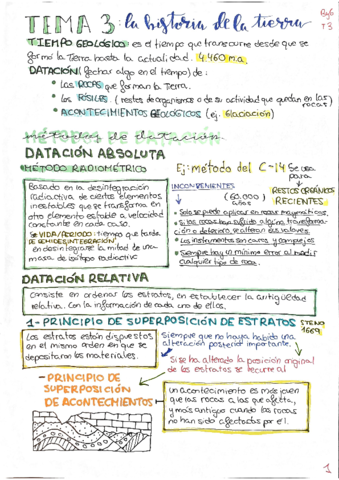 TEMA 3: la historia de la tierra
ByG
T3
TIEMPO GEOLÓGICO: es el tiempo que transcurre desde que se
formó la Tierra hasta la actualidad. 4.460 m.a.
DATACIÓN (fechar algo en el tiempo) de:
• Las ROCAS que forman la Tierra.
• Los FÓSILES (restos de organismos o de su actividad que quedan en las rocas)
• ACONTECIMIENTOS GEOLÓGICOS (ej. Glaciación)
métodos de datación
DATACIÓN ABSOLUTA
MÉTODO RADIOMÉTRICO
Basado en la desintegración
radiactiva de ciertos elementos
inestables que se transforman
otro elemento estable a velocidad
constante en cada caso.
Se VIDA/PERIODO: tiempo que tarda
DE SEMIDESINTEGRACIÓN
en desintegrarse la mitad de una
masa de isótopo radiactivo
Ej: método del C-14
Se usa
para
RESTOS ORGÁNICOS
RECIENTES
(60.000)
años
INCONVENIENTES
• Solo se puede aplicar en rocas magmáticas.
• Si las rocas han sufrido alguna transformación
o deterioro, se alteran sus valores.
• Los instrumentos son caros y complejos
• Siempre hay un mínimo error al medir
cualquier tipo de roca.
DATACIÓN RELATIVA
Consiste en ordenar los estratos, en establecer la antigüedad
relativa. Con la información de cada uno de ellos.
1- PRINCIPIO DE SUPERPOSICIÓN DE ESTRATOS
STENO
1669
Los estratos están dispuestos
en el mismo orden en que se
depositaron los materiales.
Siempre que no haya habido una
alteración posterior importante.
Si se ha alterado la posición original
de los estratos se recurre al
- PRINCIPIO DE
SUPERPOSICIÓN
DE ACONTECIMIENTOS
un acontecimiento es más joven
que las rocas a las que afecta,
y más antiguo cuando las rocas
no han sido afectadas por él.
1